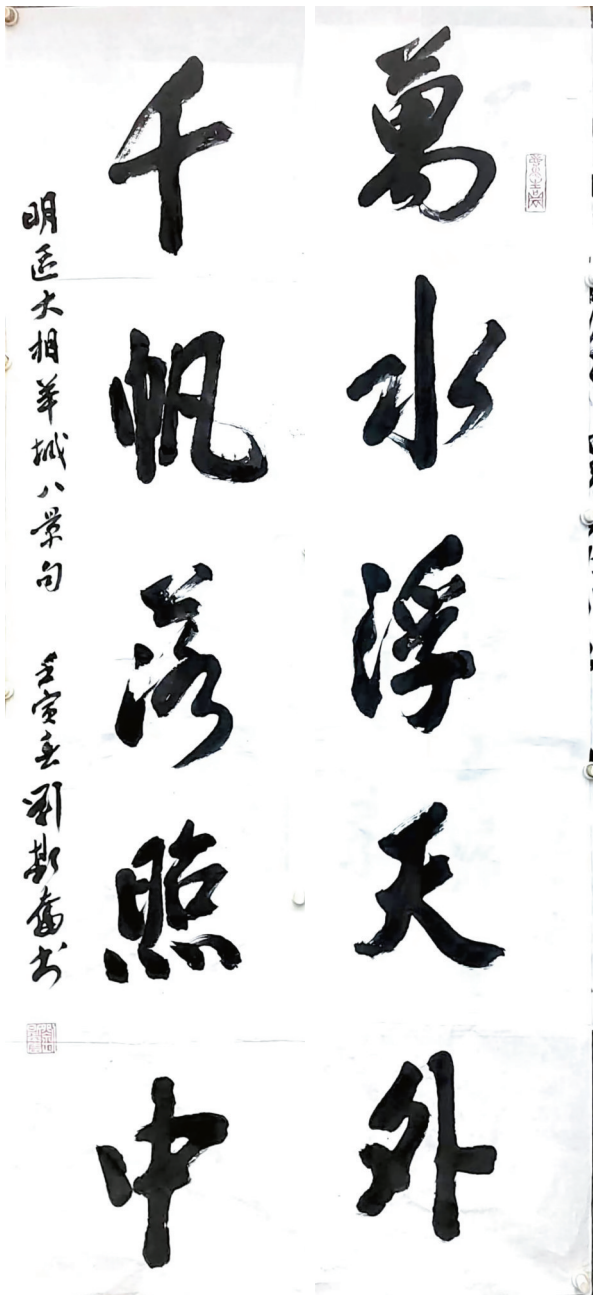 萬水浮天外
千帆落照中
明區大相羊城八景句 壬寅春劉斯奮书